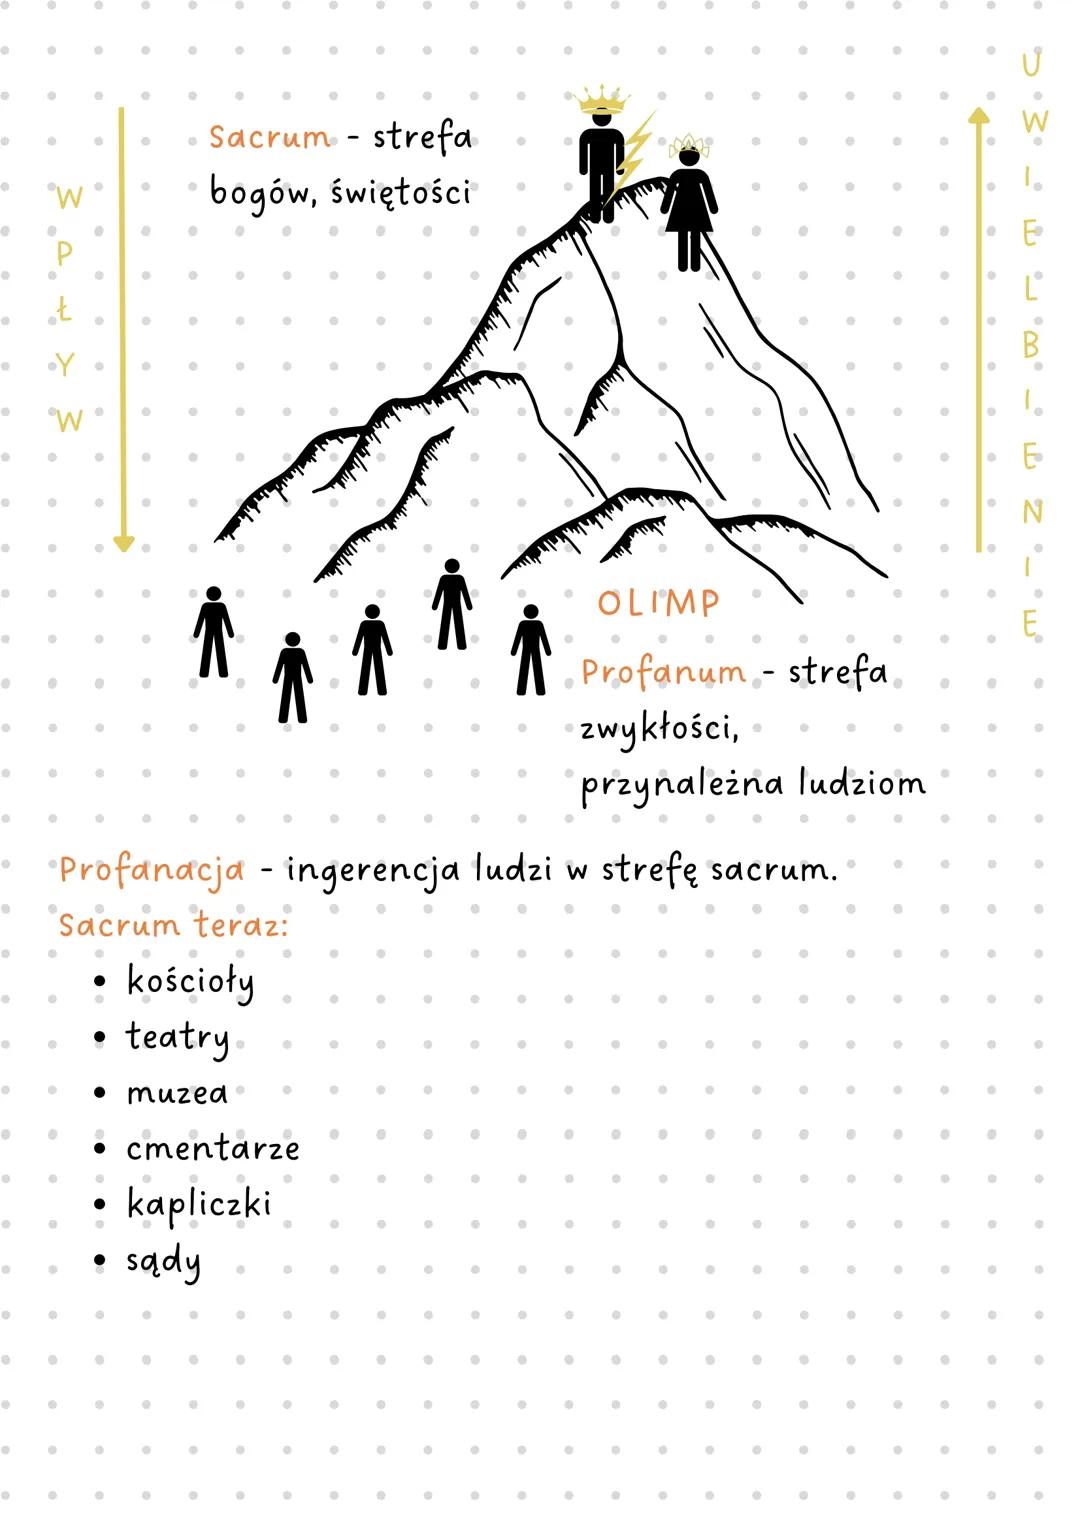 Sacrum - strefa
bogów, świętości
WPŁYW
UWIELBIENIE
OLIMP
Profanum - strefa
zwykłości,
przynależna ludziom
Profanacja - ingerencja ludzi w strefę sacrum.
Sacrum teraz:
• kościoły
• teatry
• muzea
• cmentarze
• kapliczki
• sądy